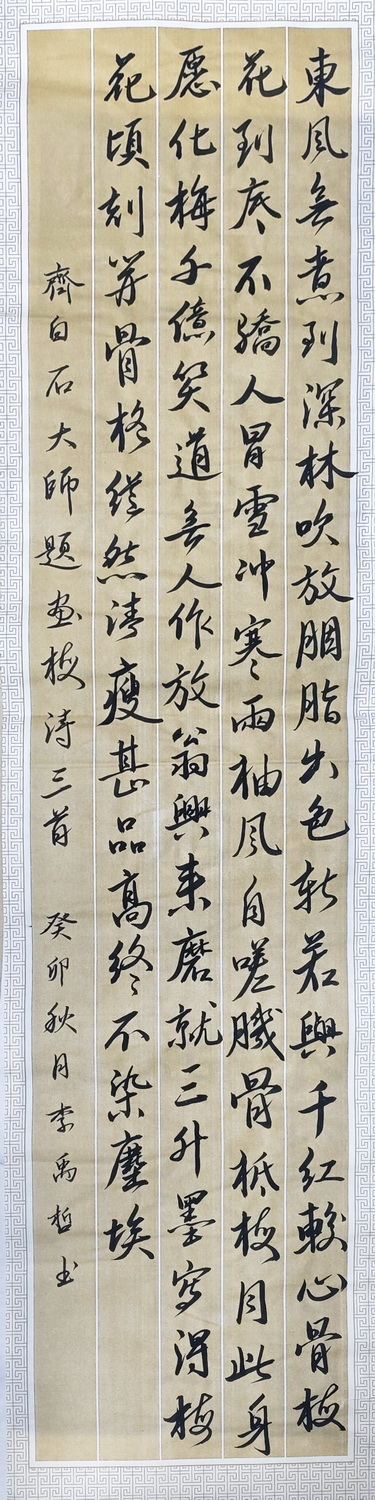 東風無意到深林吹放胭脂出色新若與千红較心骨梅
花到底不驕人冒雪冲寒兩袖風自嗟骨柢梅同此身
愿化梅千億笑道無人作放翁興来磨就三升墨寫得梅
花頃刻開骨格縱然清瘦甚品高終不染塵埃
齊白石大師題画梅诗三首 癸卯秋月李禹哲书